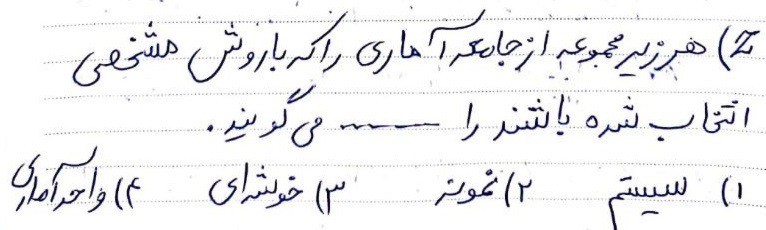 ۲) هر زیرمجموعه از جامعه آماری را که با روش مشخصی
انتخاب شده باشند را ــــــ می گویند.
۱) سیستم ۲) نمونه ۳) خوشه‌ای ۴) واحد آماری